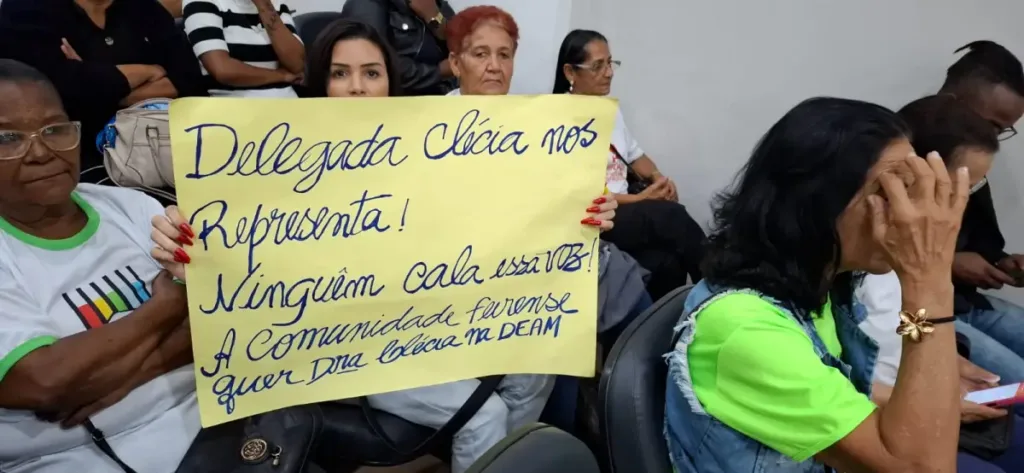 Delegada Clécia nos
Representa!
Ninguêm cala essa voz!
A Comunidade feirense
quer Dra Colécia na DEAM